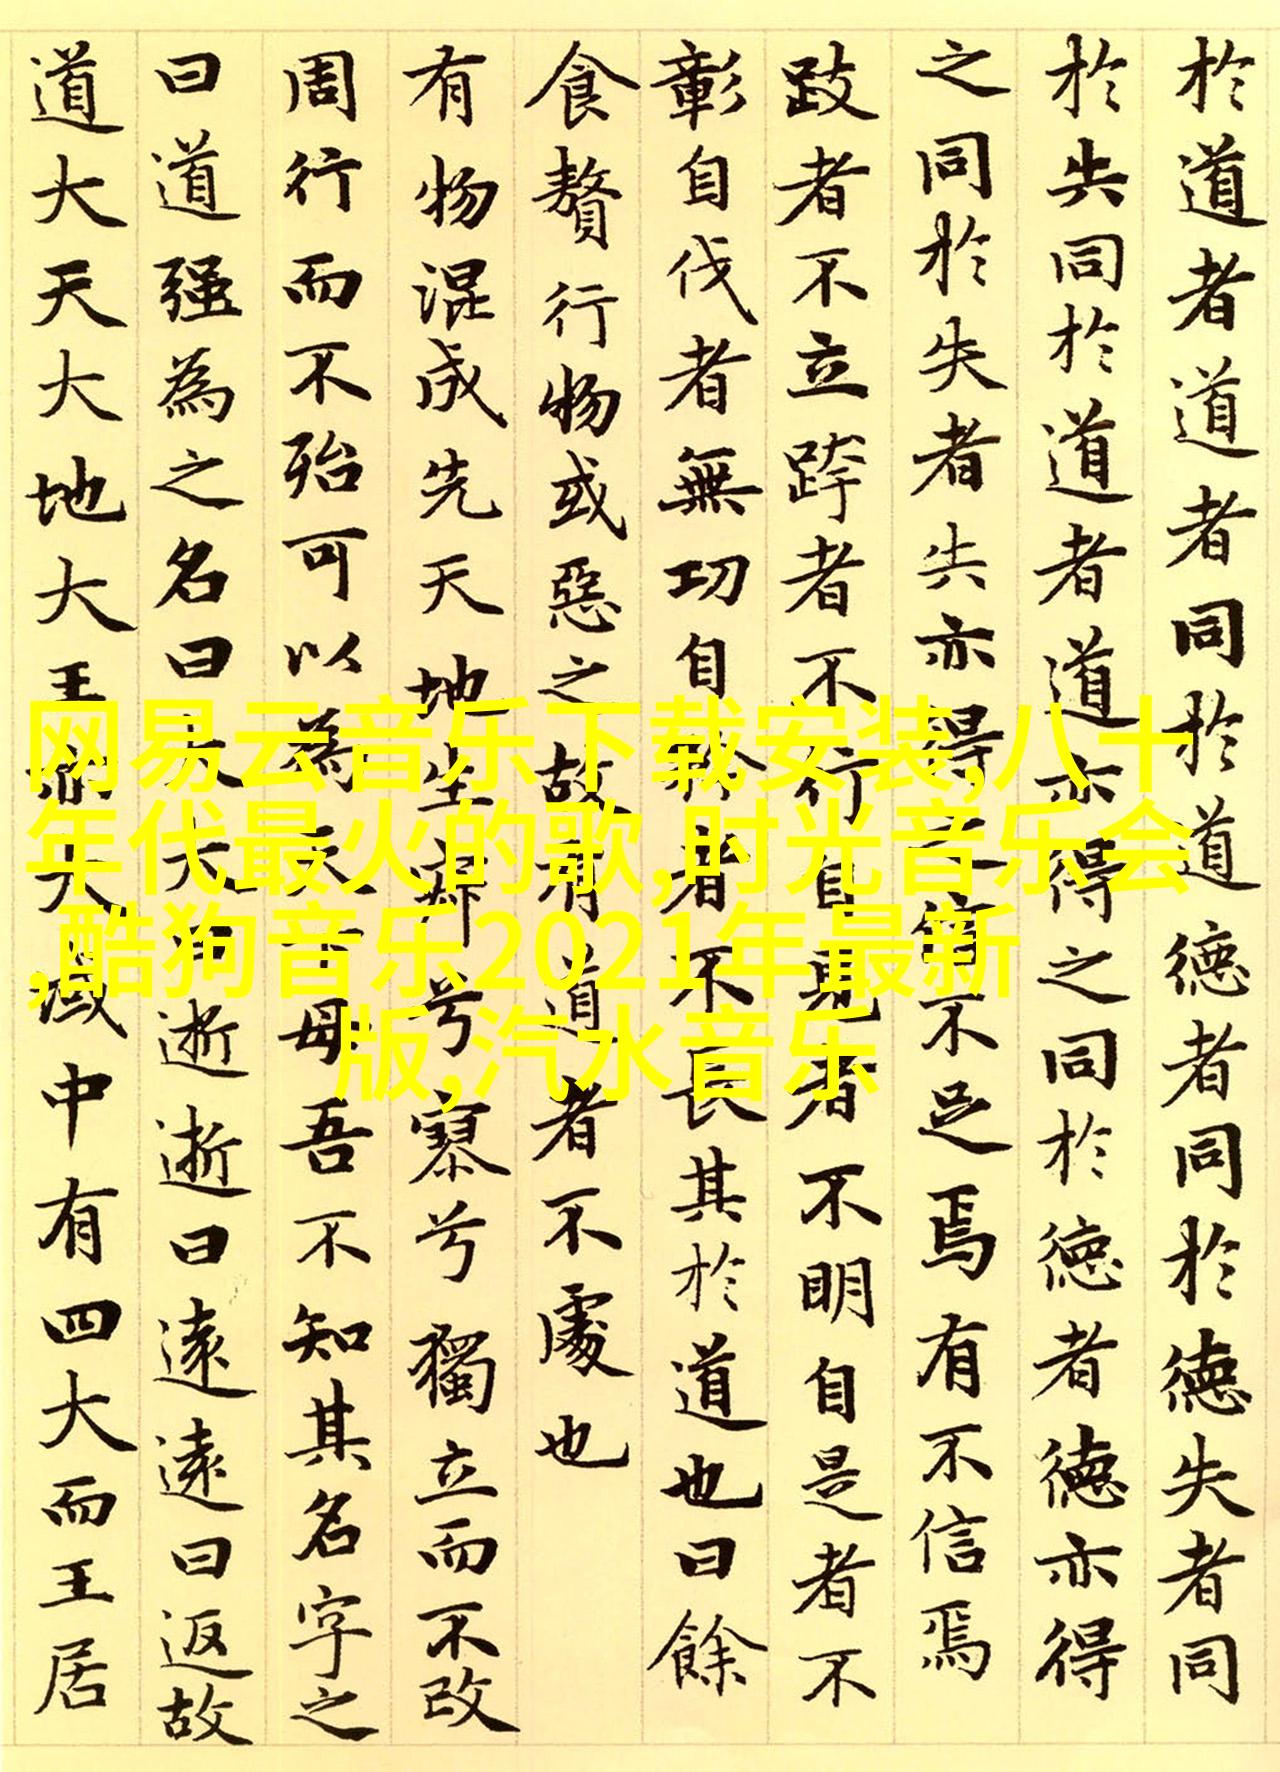 於道者道者同於道德者同於德失者同
於失同於道者道亦得之同於德者德亦得
之同於失者失亦得之信不足焉有不信焉
跂者不立跨者不行自見者不明自是者不
彰自伐者無功自矜者不長其於道也曰餘
食贅行物或惡之故有道者不處也
有物混成先天地生寂兮寥兮獨立而不改
周行而不殆可以為天下母吾不知其名字之
曰道强為之名曰大大曰逝逝曰遠遠曰返故
道大天大地大王亦大域中有四大而王居
网易云音乐下载安装,八十
年代最火的歌,时光音乐会
,酷狗音乐2021年最新
版,汽水音乐